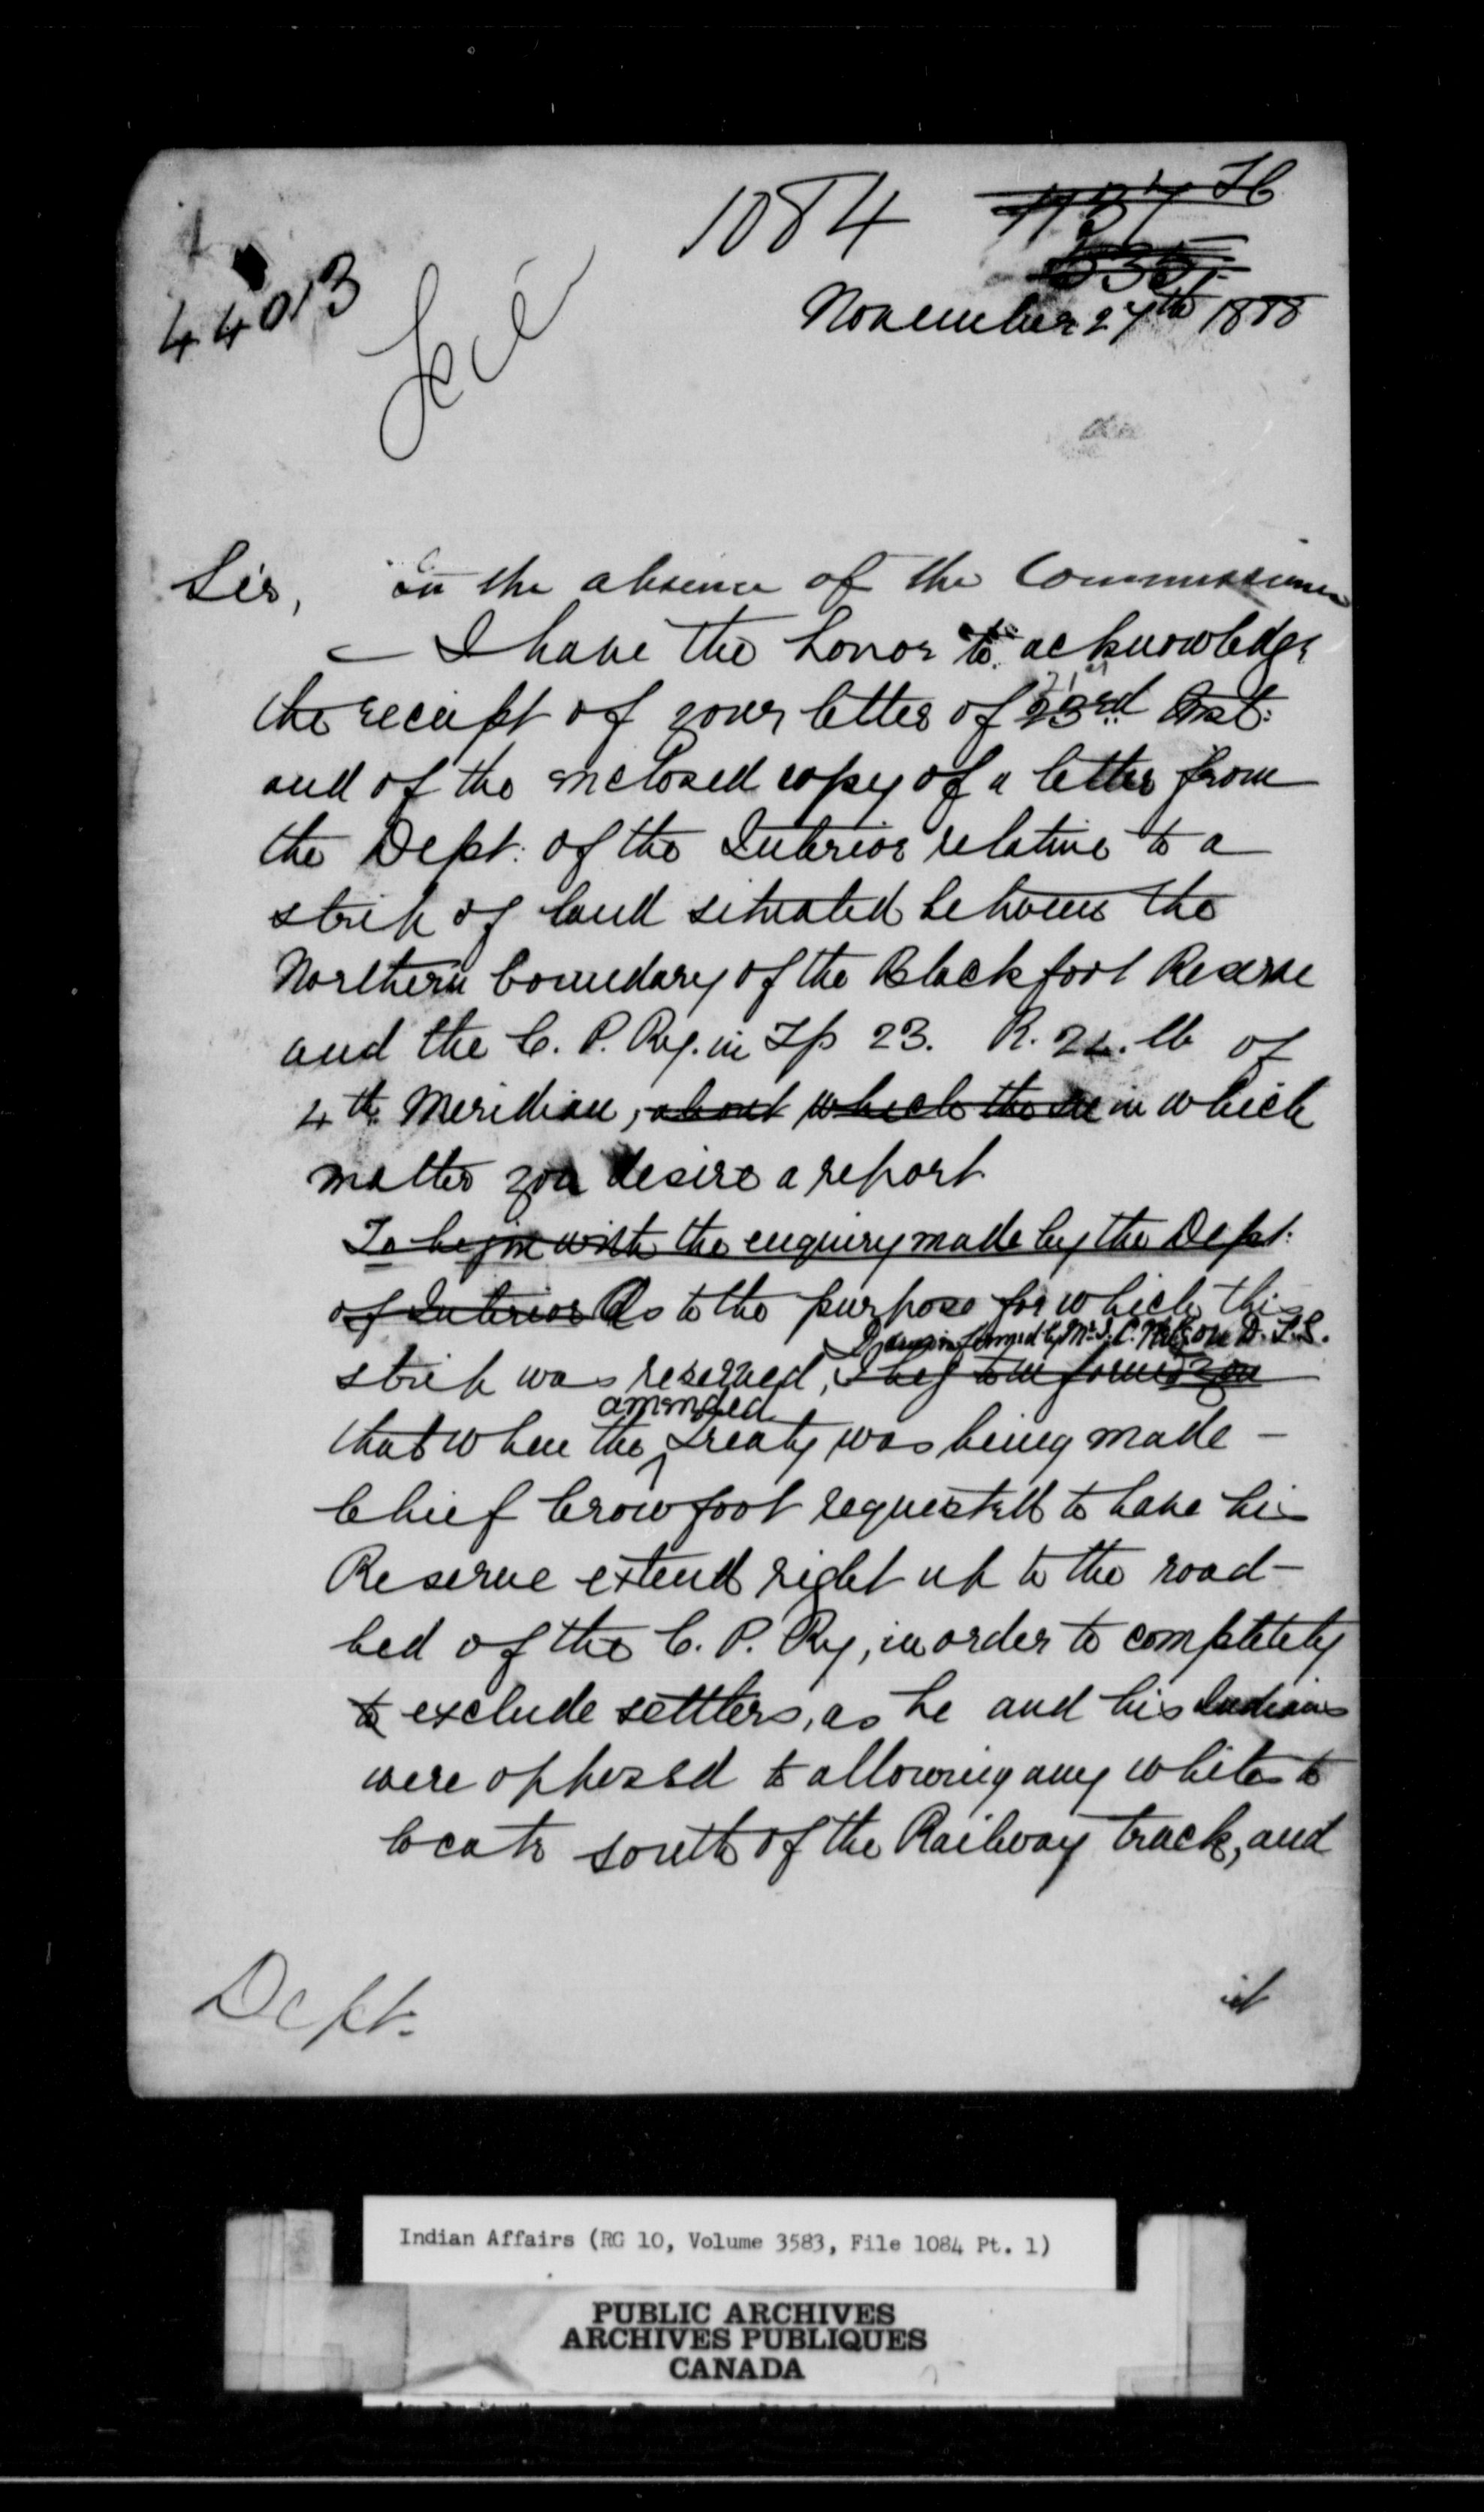 1084
44013
November 27th 1888
Sir, In the absence of the Commissioner
— I have the honor to acknowledge
the receipt of your letter of 23rd Inst:
and of the enclosed copy of a letter from
the Dept: of the Interior relative to a
strip of land situated between the
Northern boundary of the Blackfoot Reserve
and the C. P. Ry. in Tp 23. R. 24. W of
4th Meridian, about which the in which
matter you desire a report
To begin with the enquiry made by the Dept:
of Interior As to the purpose for which this
I am informed by Mr. J. C. Nelson D. L. S.
strip was reserved, I beg to inform you
amended
that when the treaty was being made —
Chief Crowfoot requested to have his
Reserve extend right up to the road-
bed of the C. P. Ry, in order to completely
to exclude settlers, as he and his Indians
were opposed to allowing any whites to
locate south of the Railway track, and
Dept.
it
Indian Affairs (RG 10, Volume 3583, File 1084 Pt. 1)
PUBLIC ARCHIVES
ARCHIVES PUBLIQUES
CANADA